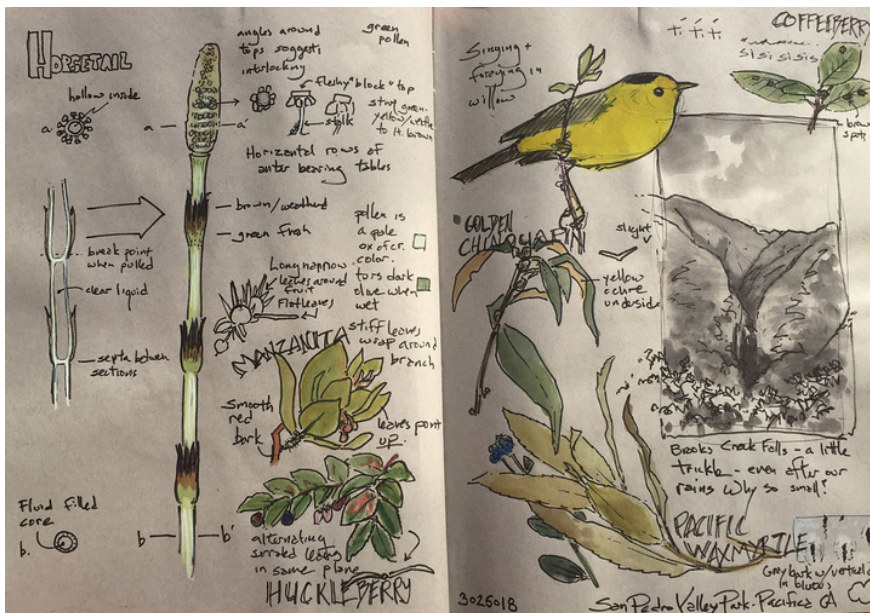 HORSETAIL
hollow inside
a
angles around
tops suggests
interlocking
green
pollen
fleshy "block" top
stalk
a
a'
Horizontal rows of
bearing tables
brown/weathered
green fresh
break point
when pulled
clear liquid
septa between
sections
pollen is
a pale
color.
dark
olive when
wet
Long narrow
leaves around
fruit
Flat leaves
MANZANITA
stiff leaves
wrap around
branch
Smooth
red
bark
leaves point
up.
Fluid filled
core
b.
b
b'
alternating
serrated leaves
in same plane
HUCKLEBERRY
Singing +
foraging in
willow
COFFEEBERRY
sisisisis
brown
spots
GOLDEN
CHINQUAPIN
slight
V
yellow
ochre
underside
Brooks Creek Falls - a little
trickle - even after our
rains Why so small?
PACIFIC
WAXMYRTLE
Grey bark w/vertical
in blotches
3025018
San Pedro Valley Park - Pacifica CA